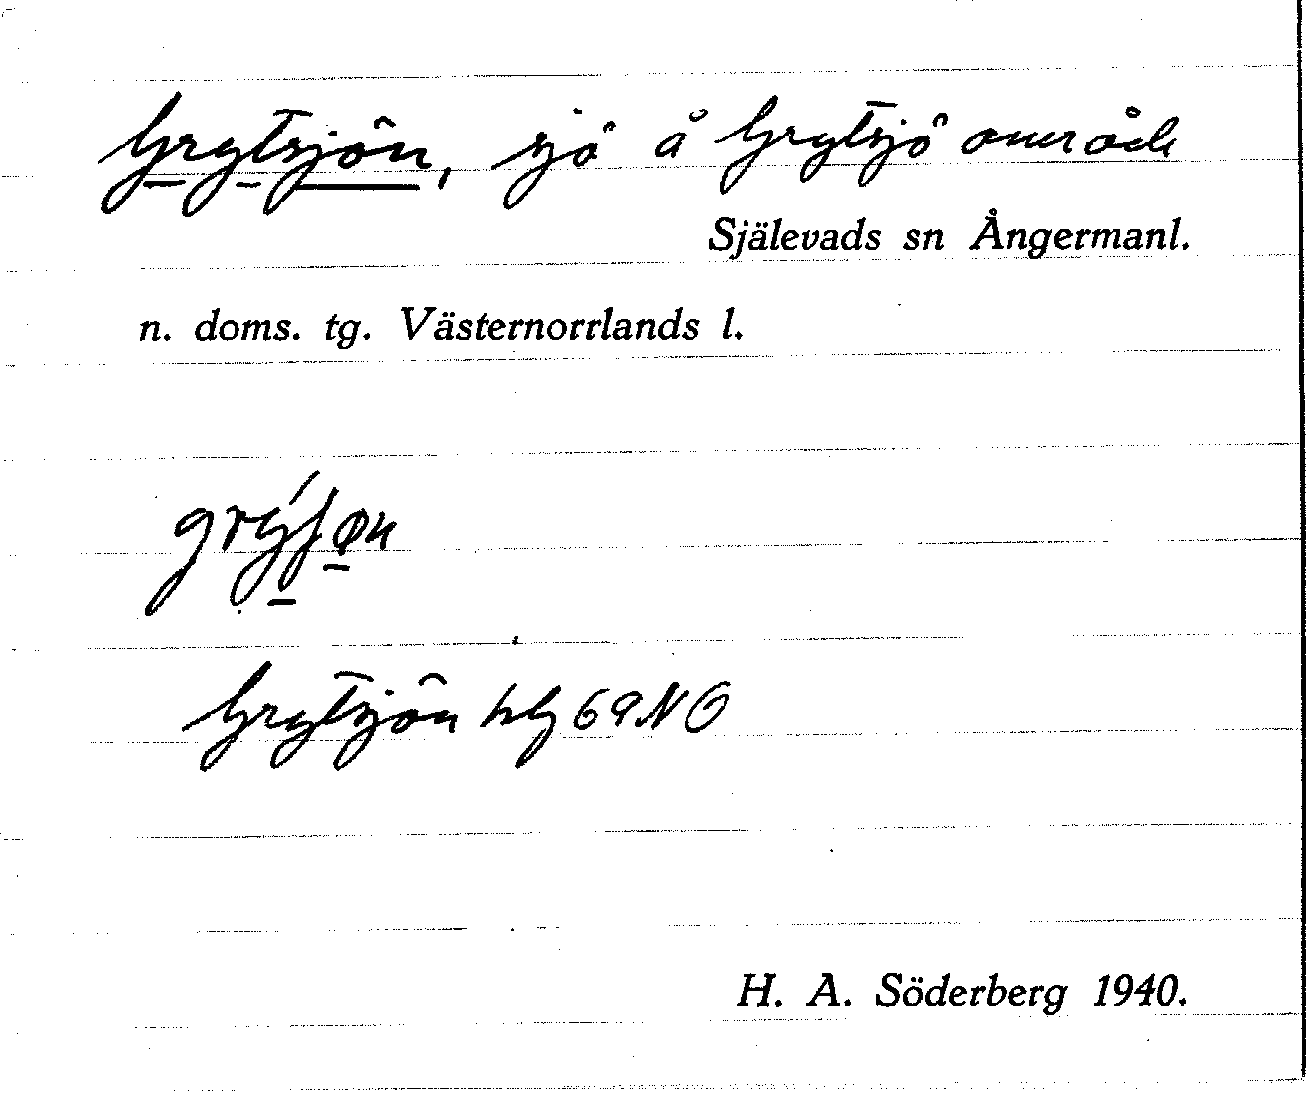 Grytsjön, sjö å Grytsjö område
Själevads sn Ångermanl.
n. doms. tg. Västernorrlands l.
Grytsjön hlf 69 NO
H. A. Söderberg 1940.